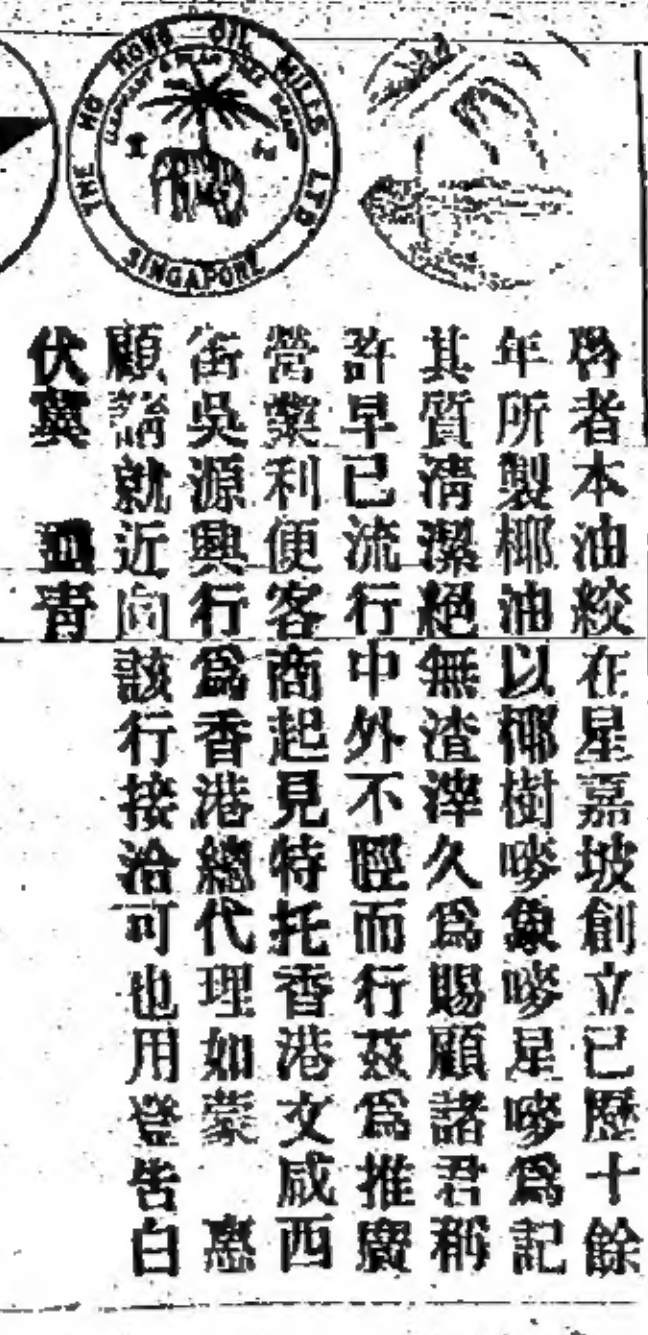 THE HO HONG OIL MILLS LTD
ELEPHANT & PALM TREE BRAND
SINGAPORE
啓者本油絞在星嘉坡創立已歷十餘
年所製椰油以椰樹嘜象嘜星嘜爲記
其質清潔絕無渣滓久爲賜顧諸君稱
許早已流行中外不脛而行茲爲推廣
營業利便客商起見特托香港文咸西
街吳源興行爲香港總代理如蒙 惠
顧請就近向該行接洽可也用登告白
伏冀 垂青